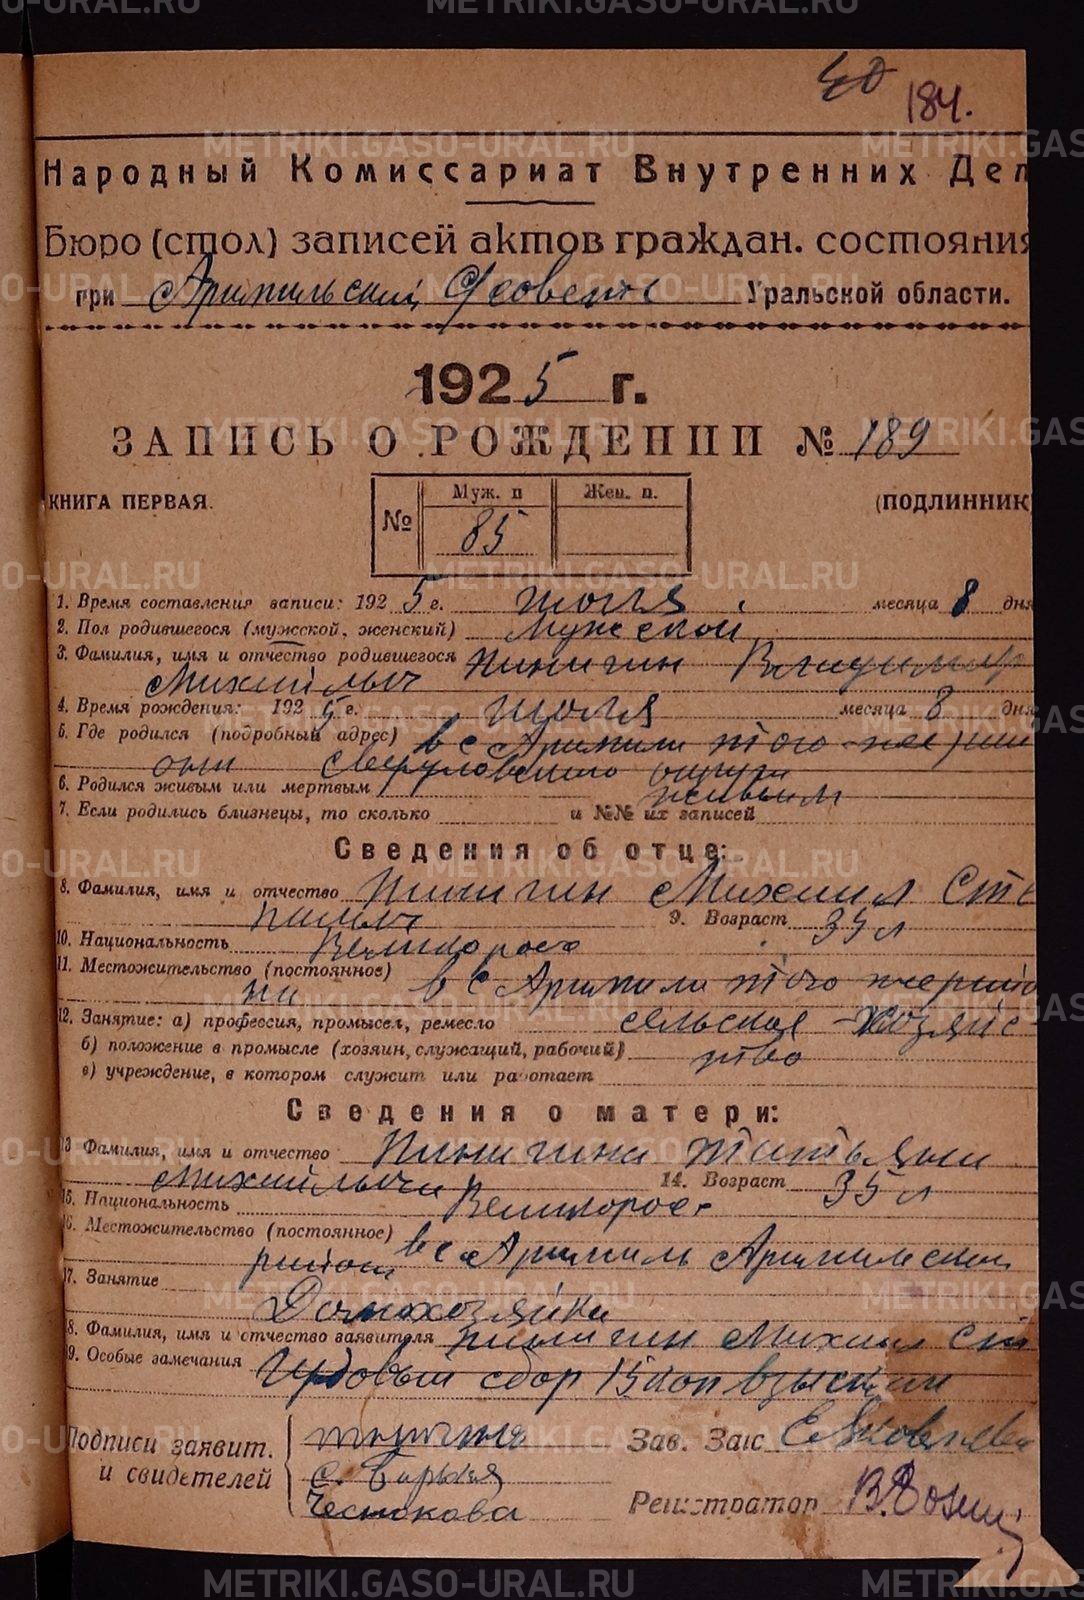 40 184.
Народный Комиссариат Внутренних Дел
Бюро (стол) записей актов граждан. состояния
при Арамильский Уральской области.
1925 г.
ЗАПИСЬ О РОЖДЕНИИ № 189
КНИГА ПЕРВАЯ. (ПОДЛИННИК)
№ Муж. п Жен. п.
85
1. Время составления записи: 1925 г. июля месяца 8 дня
2. Пол родившегося (мужской, женский) мужской
3. Фамилия, имя и отчество родившегося Пинигин Владимир
Михайлыч
4. Время рождения: 1925 г. июля месяца 8 дня
5. Где родился (подробный адрес) в с Арамили того же рай
она Свердловского округа
6. Родился живым или мертвым живым
7. Если родились близнецы, то сколько и №№ их записей
Сведения об отце:
8. Фамилия, имя и отчество Пинигин Михаил Сте
паныч 9. Возраст 35 л
10. Национальность Великоросс
11. Местожительство (постоянное) в с Арамили того же райо
на
12. Занятие: а) профессия, промысел, ремесло сельское хозяйс
б) положение в промысле (хозяин, служащий, рабочий) тво
в) учреждение, в котором служит или работает
Сведения о матери:
13 Фамилия, имя и отчество Пинигина Татьяна
Михайлычна 14. Возраст 35 л
15. Национальность Великорос
16. Местожительство (постоянное) в с Арамиль Арамильский
район
17. Занятие
Домохозяйка
18. Фамилия, имя и отчество заявителя Пинигин Михаил Ст
19. Особые замечания сбор 15 коп взыскан
Подписи заявит. и свидетелей
Пинигин
Чеснокова
Зав. Загс Е Яковлева
Регистратор В.
METRIKI.GASO-URAL.RU